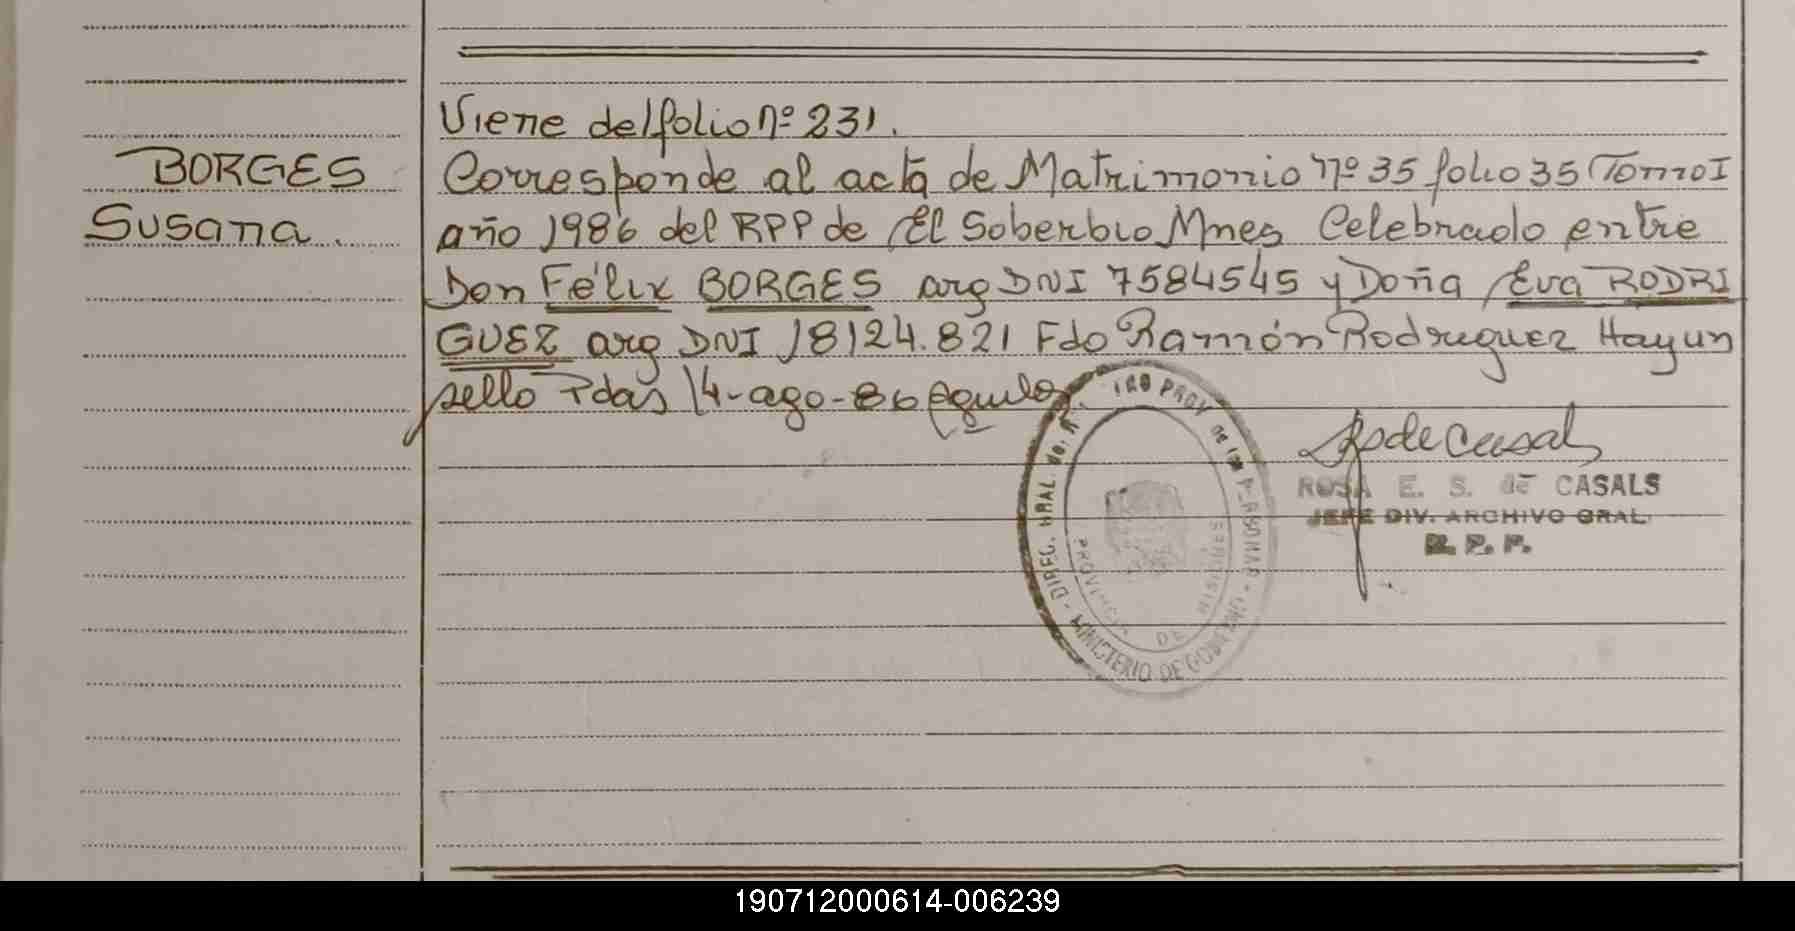 Viene del folio nº 231.
BORGES
Susana.
Corresponde al acta de Matrimonio nº 35 folio 35 Tomo I
año 1986 del RPP de El Soberbio Mnes Celebrado entre
Don Félix BORGES arg DNI 7584545 y Doña Eva RODRI
GUEZ arg DNI 18124.821 Fdo Ramón Rodriguez Hayun
sello Pdas 14-ago-86
ROSA E. S. de CASALS
JEFE DIV. ARCHIVO GRAL.
R. P. P.
DIREC. GRAL. del REGISTRO PROV. DE LAS PERSONAS - MINISTERIO DE GOBIERNO -
PROVINCIA DE MISIONES
190712000614-006239